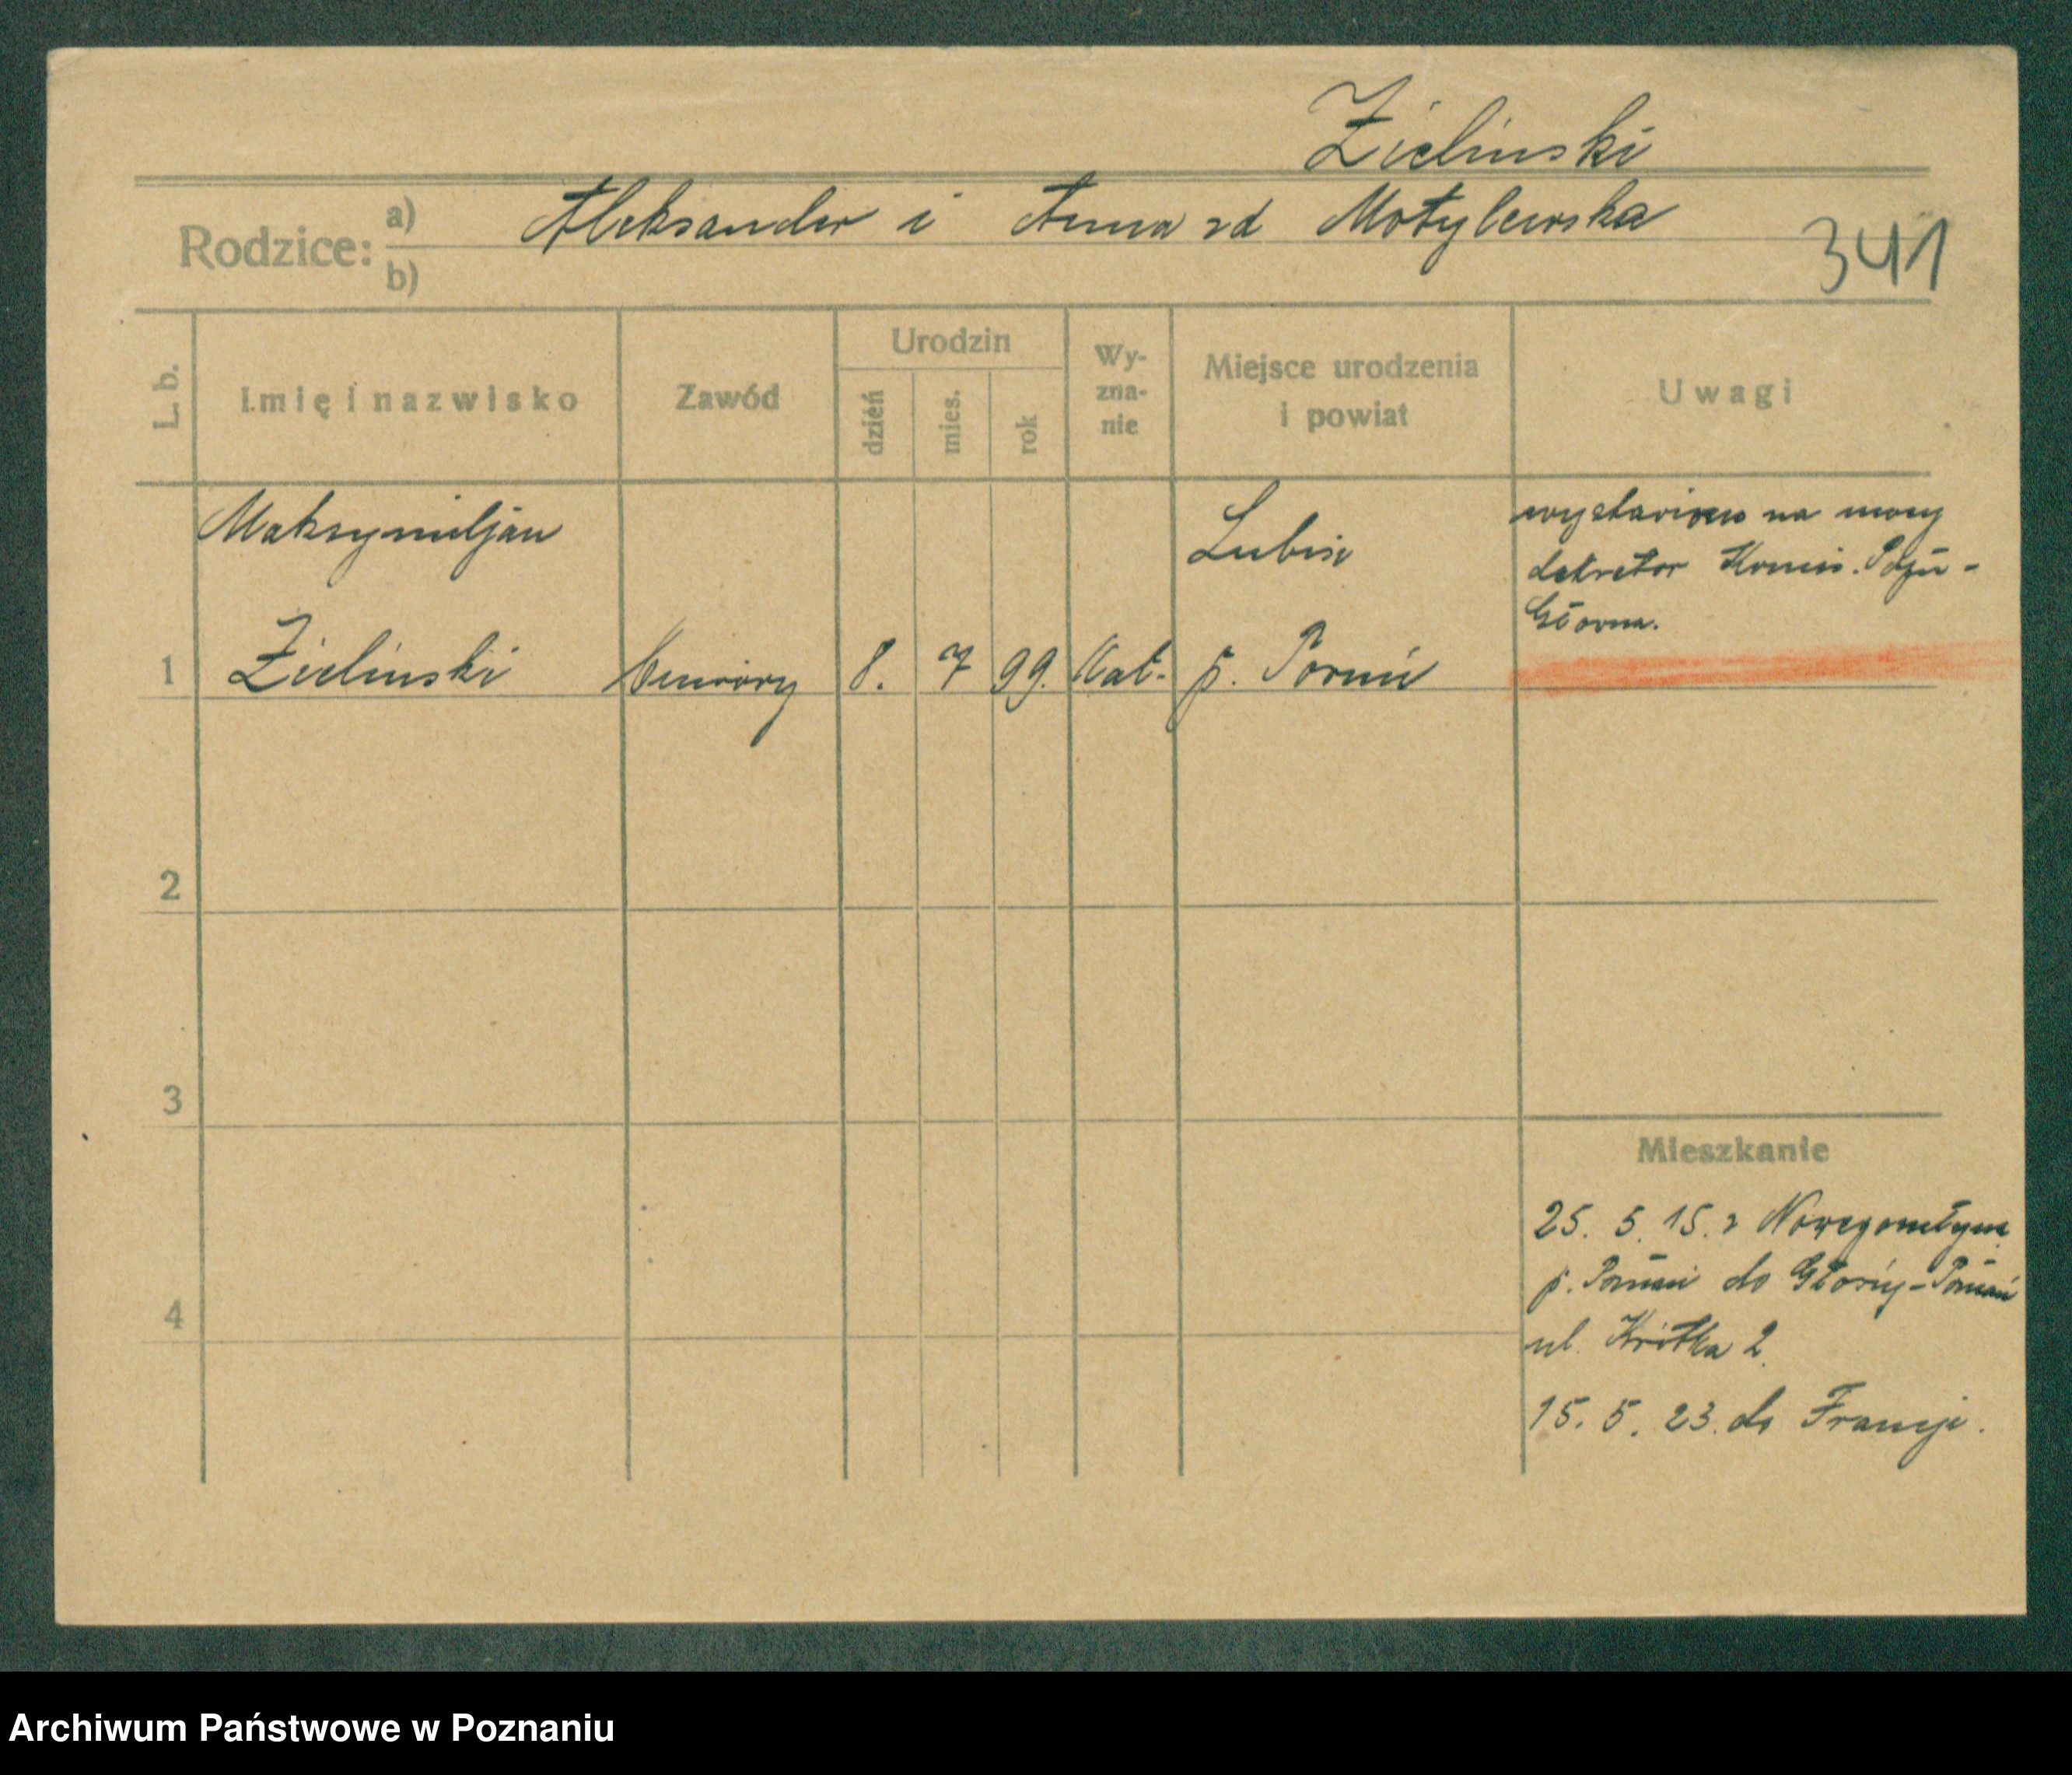 Zieliński
Rodzice: a) Aleksander i Anna zd Motylewska
b)
341
L. b.
Imię i nazwisko
Zawód
Urodzin
dzień
mies.
rok
Wy-
zna-
nie
Miejsce urodzenia
i powiat
Uwagi
Maksymiljan
na mocy
Komis.
Główna.
1 Zieliński 8. 7 99. Kat. p. Poznań
2
3
4
Mieszkanie
25. 5. 15. z
p. Poznań do Główny-Poznań
ul. Krótka 2.
15. 5. 23. do Francji.
Archiwum Państwowe w Poznaniu